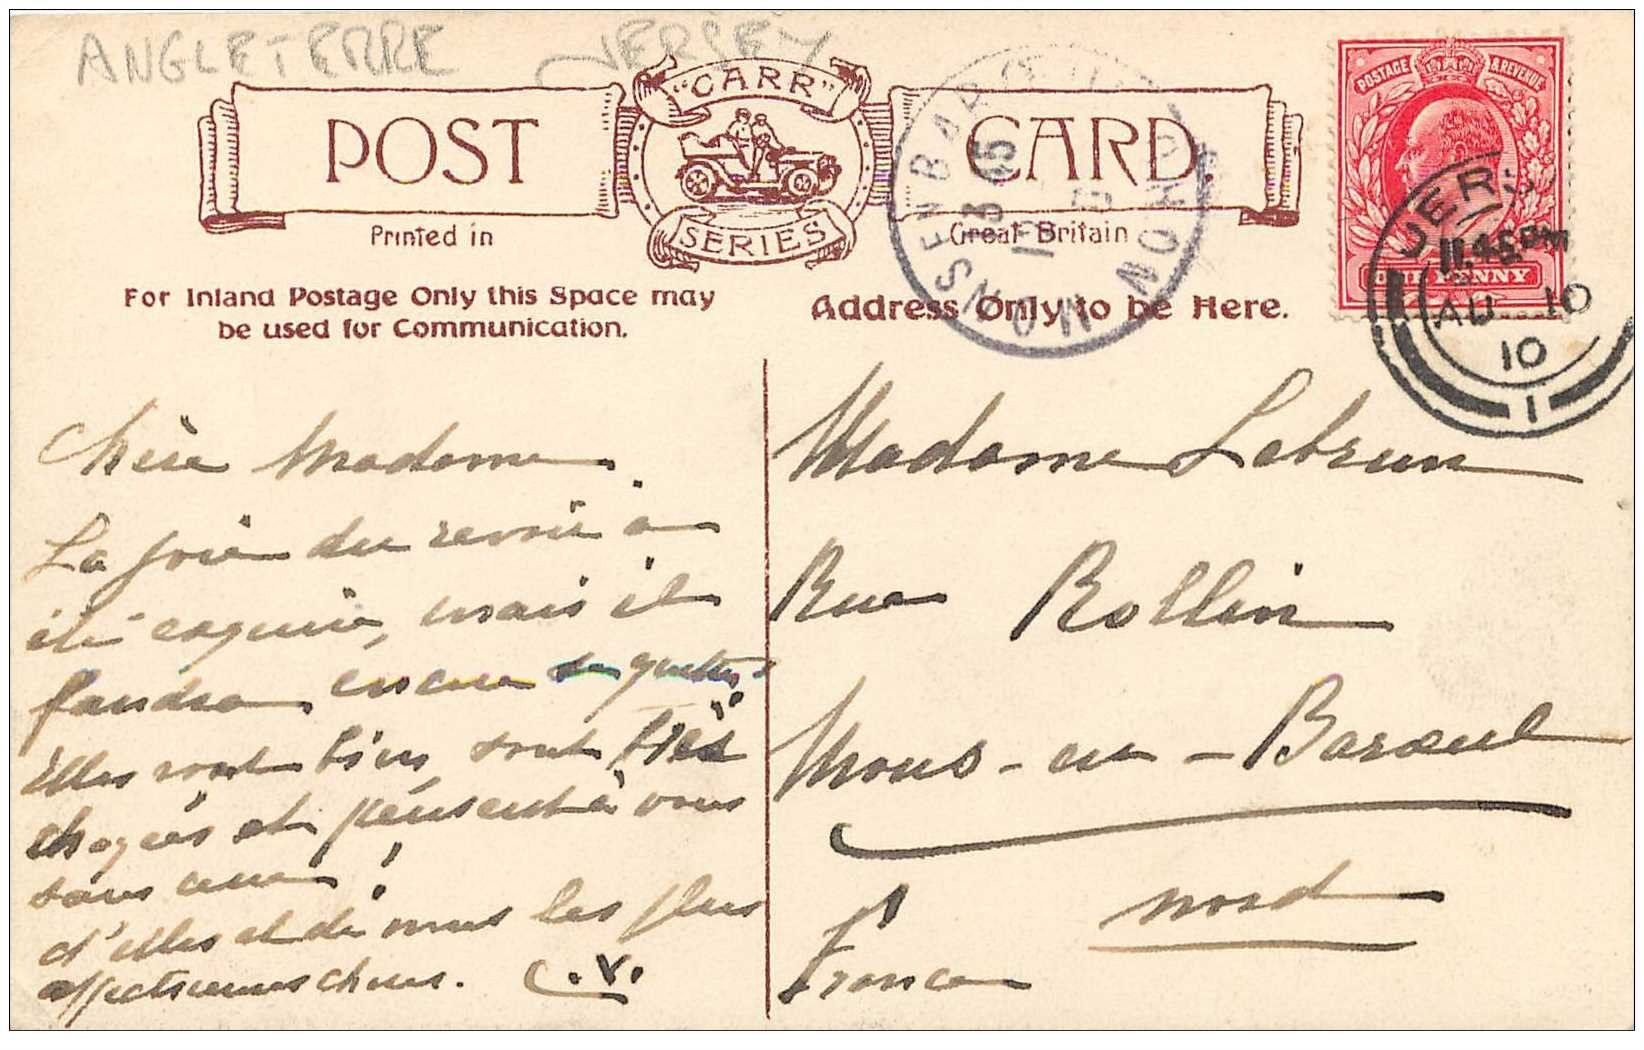 ANGLETERRE JERSEY
"CARR"
POST CARD.
SERIES
Printed in Great Britain
For Inland Postage Only this Space may
be used for Communication.
Address Only to be Here.
POSTAGE & REVENUE
ONE PENNY
JERSEY
11.45 PM
AU 10
10
1
MONS EN BAROEUL
NORD
Chère Madame.
La joie du revoir a
été exquise, mais il
faudra encore se quitter.
Elles vont bien, sont très
choyées et pensent à vous
sans cesse!
d'elles et de nous les plus
affectueuses choses. C.V.
Madame Lebrun
Rue Rollin
Mons-en-Baroeul
Nord
France